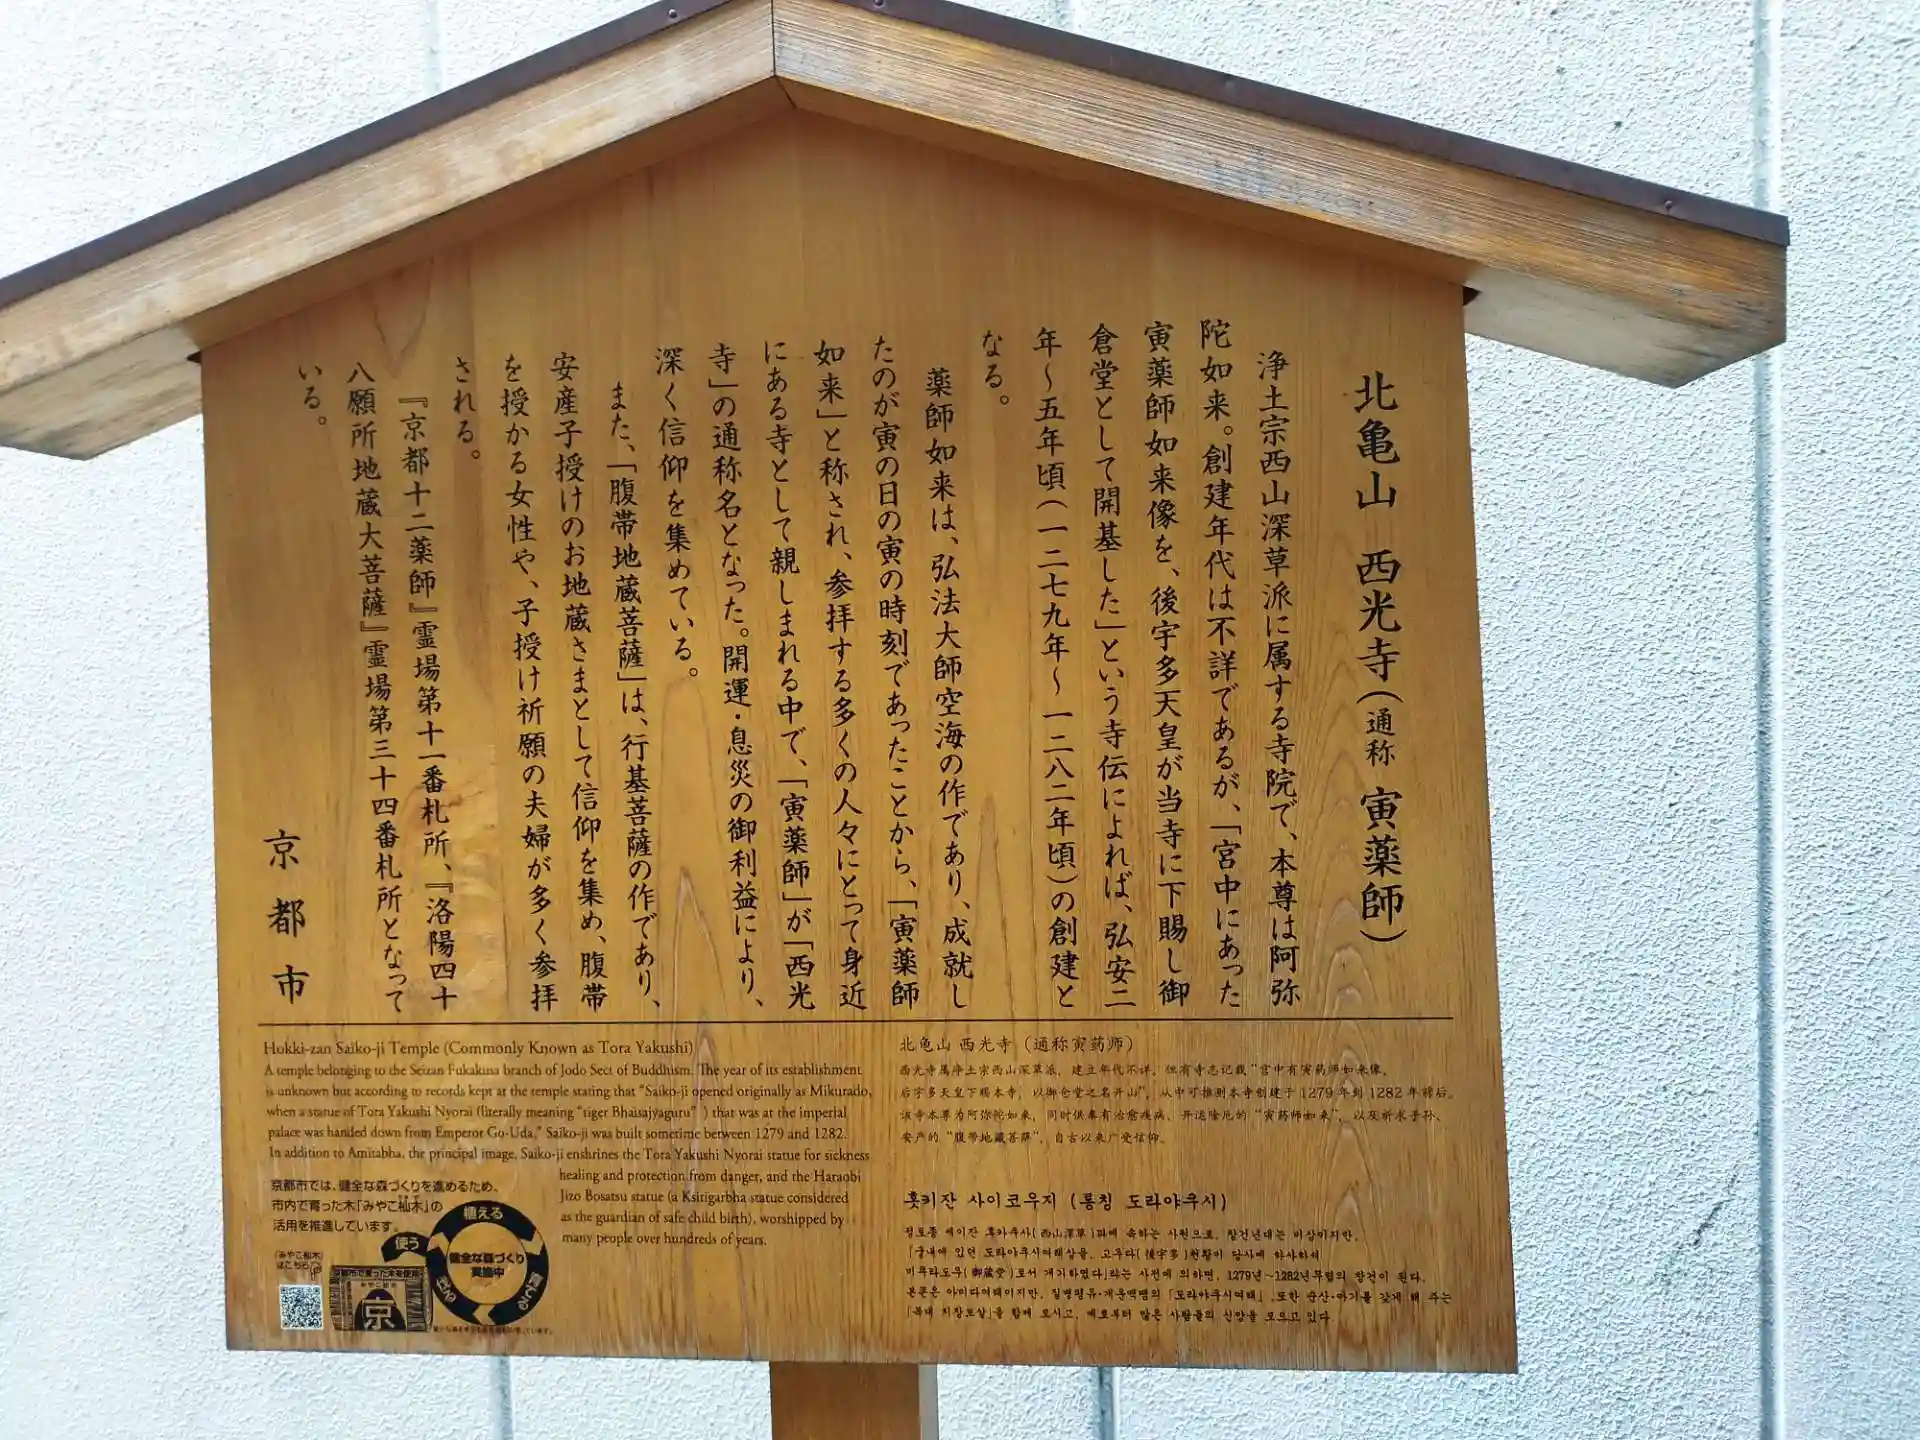 北亀山 西光寺(通称 寅薬師)
浄土宗西山深草派に属する寺院で、本尊は阿弥
陀如来。創建年代は不詳であるが、「宮中にあった
寅薬師如来像を、後宇多天皇が当寺に下賜し御
倉堂として開基した」という寺伝によれば、弘安二
年～五年頃(一二七九年～一二八二年頃)の創建と
なる。
薬師如来は、弘法大師空海の作であり、成就し
たのが寅の日の寅の時刻であったことから、「寅薬師
如来」と称され、参拝する多くの人々にとって身近
にある寺として親しまれる中で、「寅薬師」が「西光
寺」の通称名となった。開運・息災の御利益により、
深く信仰を集めている。
また、「腹帯地蔵菩薩」は、行基菩薩の作であり、
安産子授けのお地蔵さまとして信仰を集め、腹帯
を授かる女性や、子授け祈願の夫婦が多く参拝
される。
『京都十二薬師』霊場第十一番札所、『洛陽四十
八願所地蔵大菩薩』霊場第三十四番札所となって
いる。
京都市
Hokki-zan Saiko-ji Temple (Commonly Known as Tora Yakushi)
A temple belonging to the Seizan Fukakusa branch of Jodo Sect of Buddhism. The year of its establishment
is unknown but according to records kept at the temple stating that "Saiko-ji opened originally as Mikurado,
when a statue of Tora Yakushi Nyorai (literally meaning "tiger Bhaisajyaguru" ) that was at the imperial
palace was handed down from Emperor Go-Uda," Saiko-ji was built sometime between 1279 and 1282.
In addition to Amitabha, the principal image, Saiko-ji enshrines the Tora Yakushi Nyorai statue for sickness
healing and protection from danger, and the Haraobi
Jizo Bosatsu statue (a Ksitigarbha statue considered
as the guardian of safe child birth), worshipped by
many people over hundreds of years.
京都市では、健全な森づくりを進めるため、
市内で育った木「みやこ杣木」の
活用を推進しています。
「みやこ杣木」
はこちら
植える
育てる
使う
健全な森づくり
実施中
京都市で育った木を使用
みやこ杣木
京
北龟山 西光寺（通称寅药师）
西光寺属净土宗西山深草派，建立年代不详，但有寺志记载"宫中有寅药师如来像，
后宇多天皇下赐本寺，以御仓堂之名开山"，从中可推测本寺创建于1279年到1282年前后。
该寺本尊为阿弥陀如来，同时供奉有治愈疾病、开运除厄的"寅药师如来"，以及祈求子孙、
安产的"腹带地藏菩萨"，自古以来广受信仰。
홋키잔 사이코우지 (통칭 도라야쿠시)
정토종 세이잔 후카쿠사(西山深草)파에 속하는 사원으로, 창건년대는 미상이지만,
「궁내에 있던 도라야쿠시여래상을, 고우다(後宇多)천황이 당사에 하사하셔
미쿠라도우(御蔵堂)로서 개기하였다」라는 사전에 의하면, 1279년～1282년무렵의 창건이 된다.
본존은 아미다여래이지만, 질병평유·개운액맴의 「도라야쿠시여래」,또한 순산·아기를 갖게 해 주는
「복대 지장보살」을 함께 모시고, 예로부터 많은 사람들의 신앙을 모으고 있다.